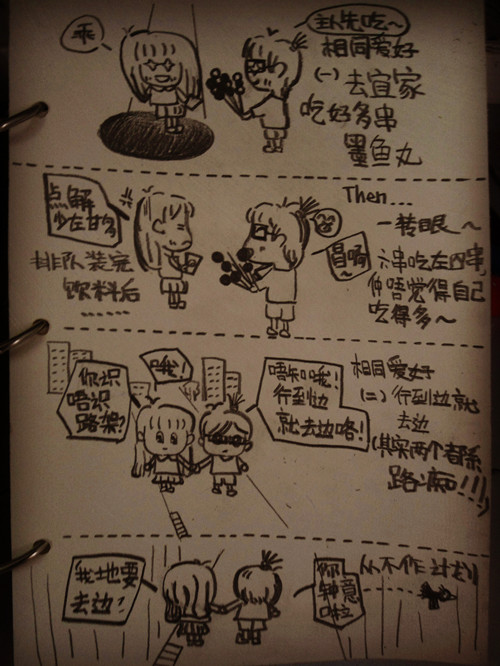 乖
先吃~
相同爱好
(一)去宜家
吃好多串
墨鱼丸
点解
少左甘多
排队装完
饮料后
......
Then...
一转眼~
冒啊~
串吃左四串,
仲唔觉得自己
吃得多~
你识
唔识
路架?
哦!
唔知哦!
行到边
就去边咯!
相同爱好
(二)行到边就
去边
(其实两个都系
路痴!!!)
我地要
去边?
你
钟意
啦
从不作计划